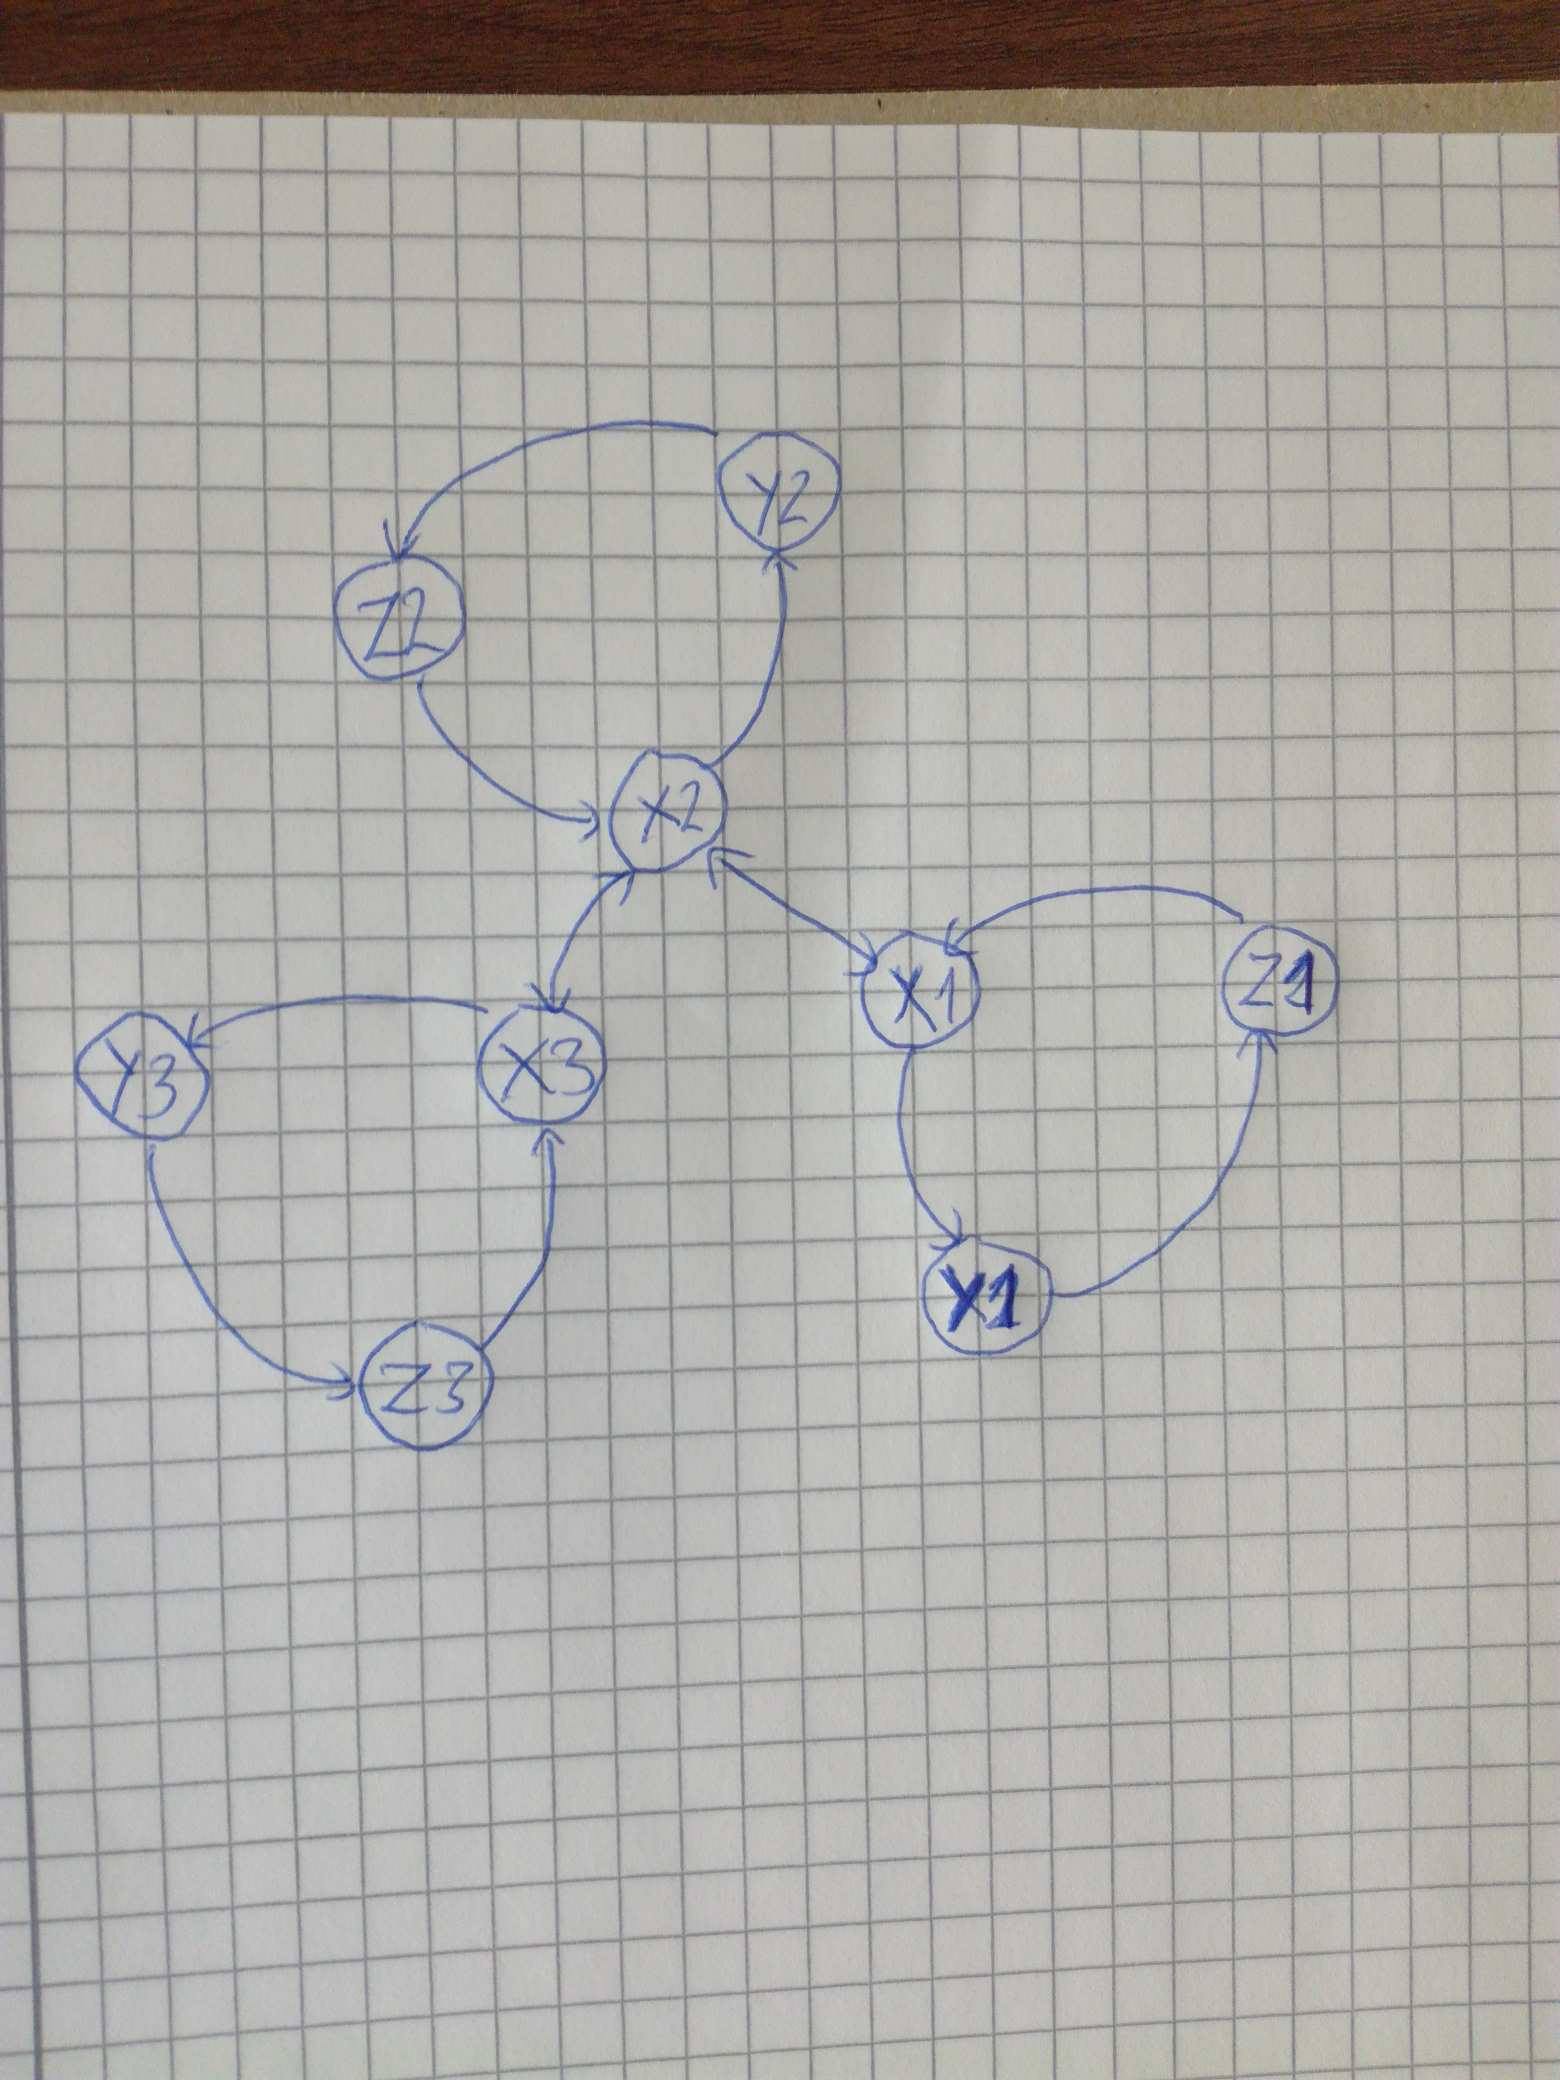 Y2
Z2
X2
X1
Z1
Y3
X3
Y1
Z3